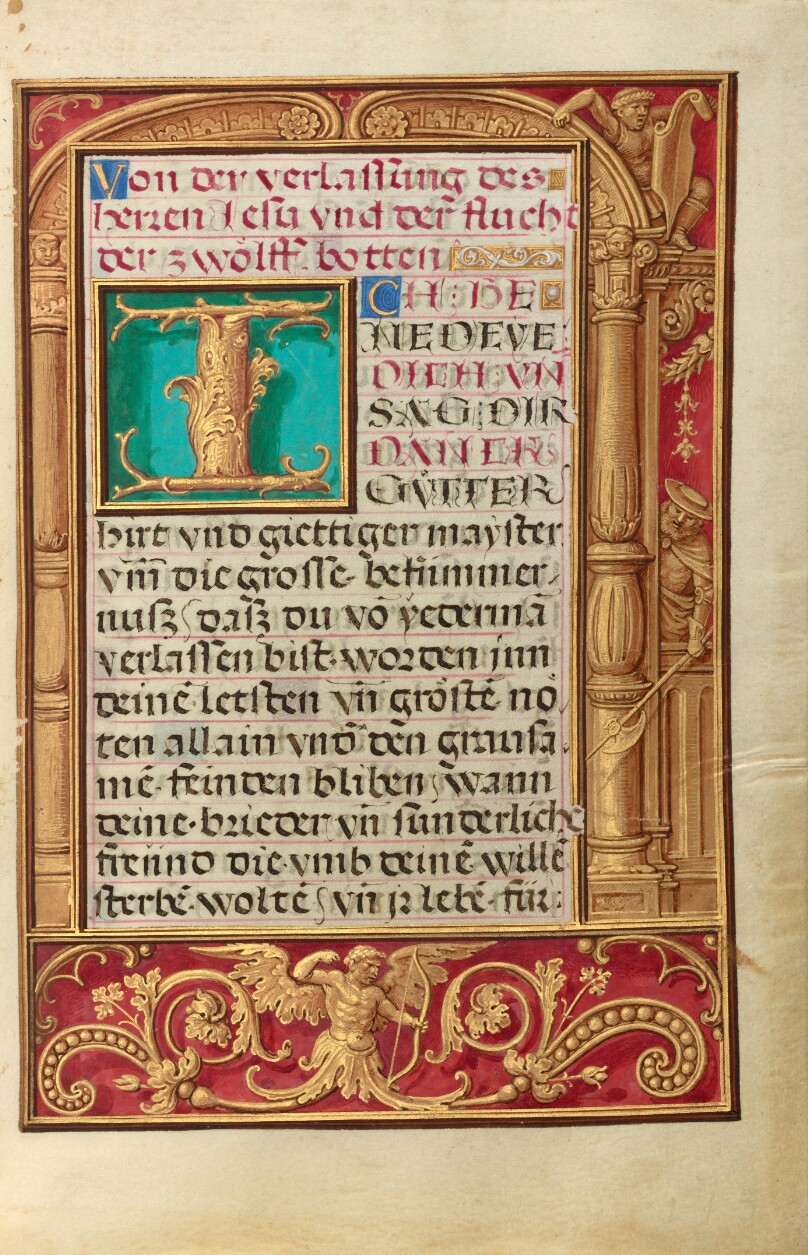 Von der verlassūng des
herren Jesu vnd der flucht
der zwölff botten
I
CH : BE
NEDEYE
DICH : VN̄
SAG : DIR
DANCK
GVTTER
hirt vnd giettiger mayster
vm̄ die grosse bekümmer⸗
nusz, dasz du vō yedermā
verlassen bist worden jnn
deinē letsten vn̄ gröstē nö⸗
ten allain vnd den grausa⸗
mē feinden bliben, wann
deine brieder vn̄ sunderliche
freünd die vmb deinē willē
sterbē woltē, vn̄ jr lebē für: